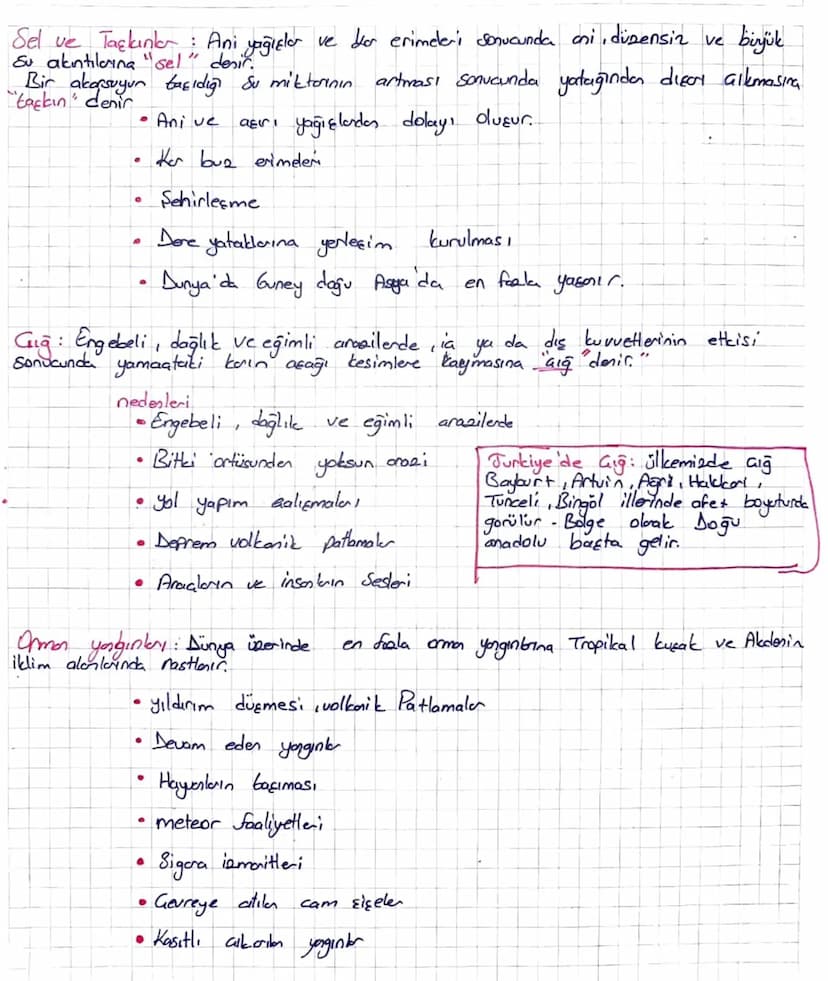 Sel ve Taşkınlar : Ani yağışlar ve kar erimeleri sonucunda ani, düzensiz ve büyük
su akıntılarına "sel" denir.
Bir akarsuyun taşıdığı su miktarının artması sonucunda yatağından dışarı çıkmasına
"taşkın" denir
• Ani ve aşırı yağışlardan dolayı oluşur.
• Kar buz erimeleri
• Şehirleşme
• Dere yataklarına yerleşim kurulması
• Dunya'da Guney doğu Asya'da en fazla yaşanır.
Çığ : Engebeli, dağlık ve eğimli arazilerde, iç ya da dış kuvvetlerinin etkisi
sonucunda yamaçtaki karın aşağı kesimlere kaymasına "çığ" denir."
nedenleri
• Engebeli, dağlık ve eğimli arazilerde
• Bitki örtüsunden yoksun arazi
• Yol yapım çalışmaları
• Deprem volkanik patlamalar
• Araçların ve insanların Sesleri
Turkiye'de Çığ: ülkemizde çığ
Bayburt, Artvin, Agrı, Hakkari,
Tunceli, Bingöl illerinde afet boyutunda
görülür - Bölge olarak Doğu
anadolu başta gelir.
Orman yangınları : Dünya üzerinde en fazla orman yangınlarına Tropikal kuşak ve Akdeniz
iklim alanlarında rastlanır.
• yıldırım düşmesi, volkanik Patlamalar
• Devam eden yangınlar
• Hayvanların taşıması
• meteor faaliyetleri
• Sigara izmaritleri
• Çevreye atılan cam şişeler
• Kasıtlı çıkarılan yangınlar